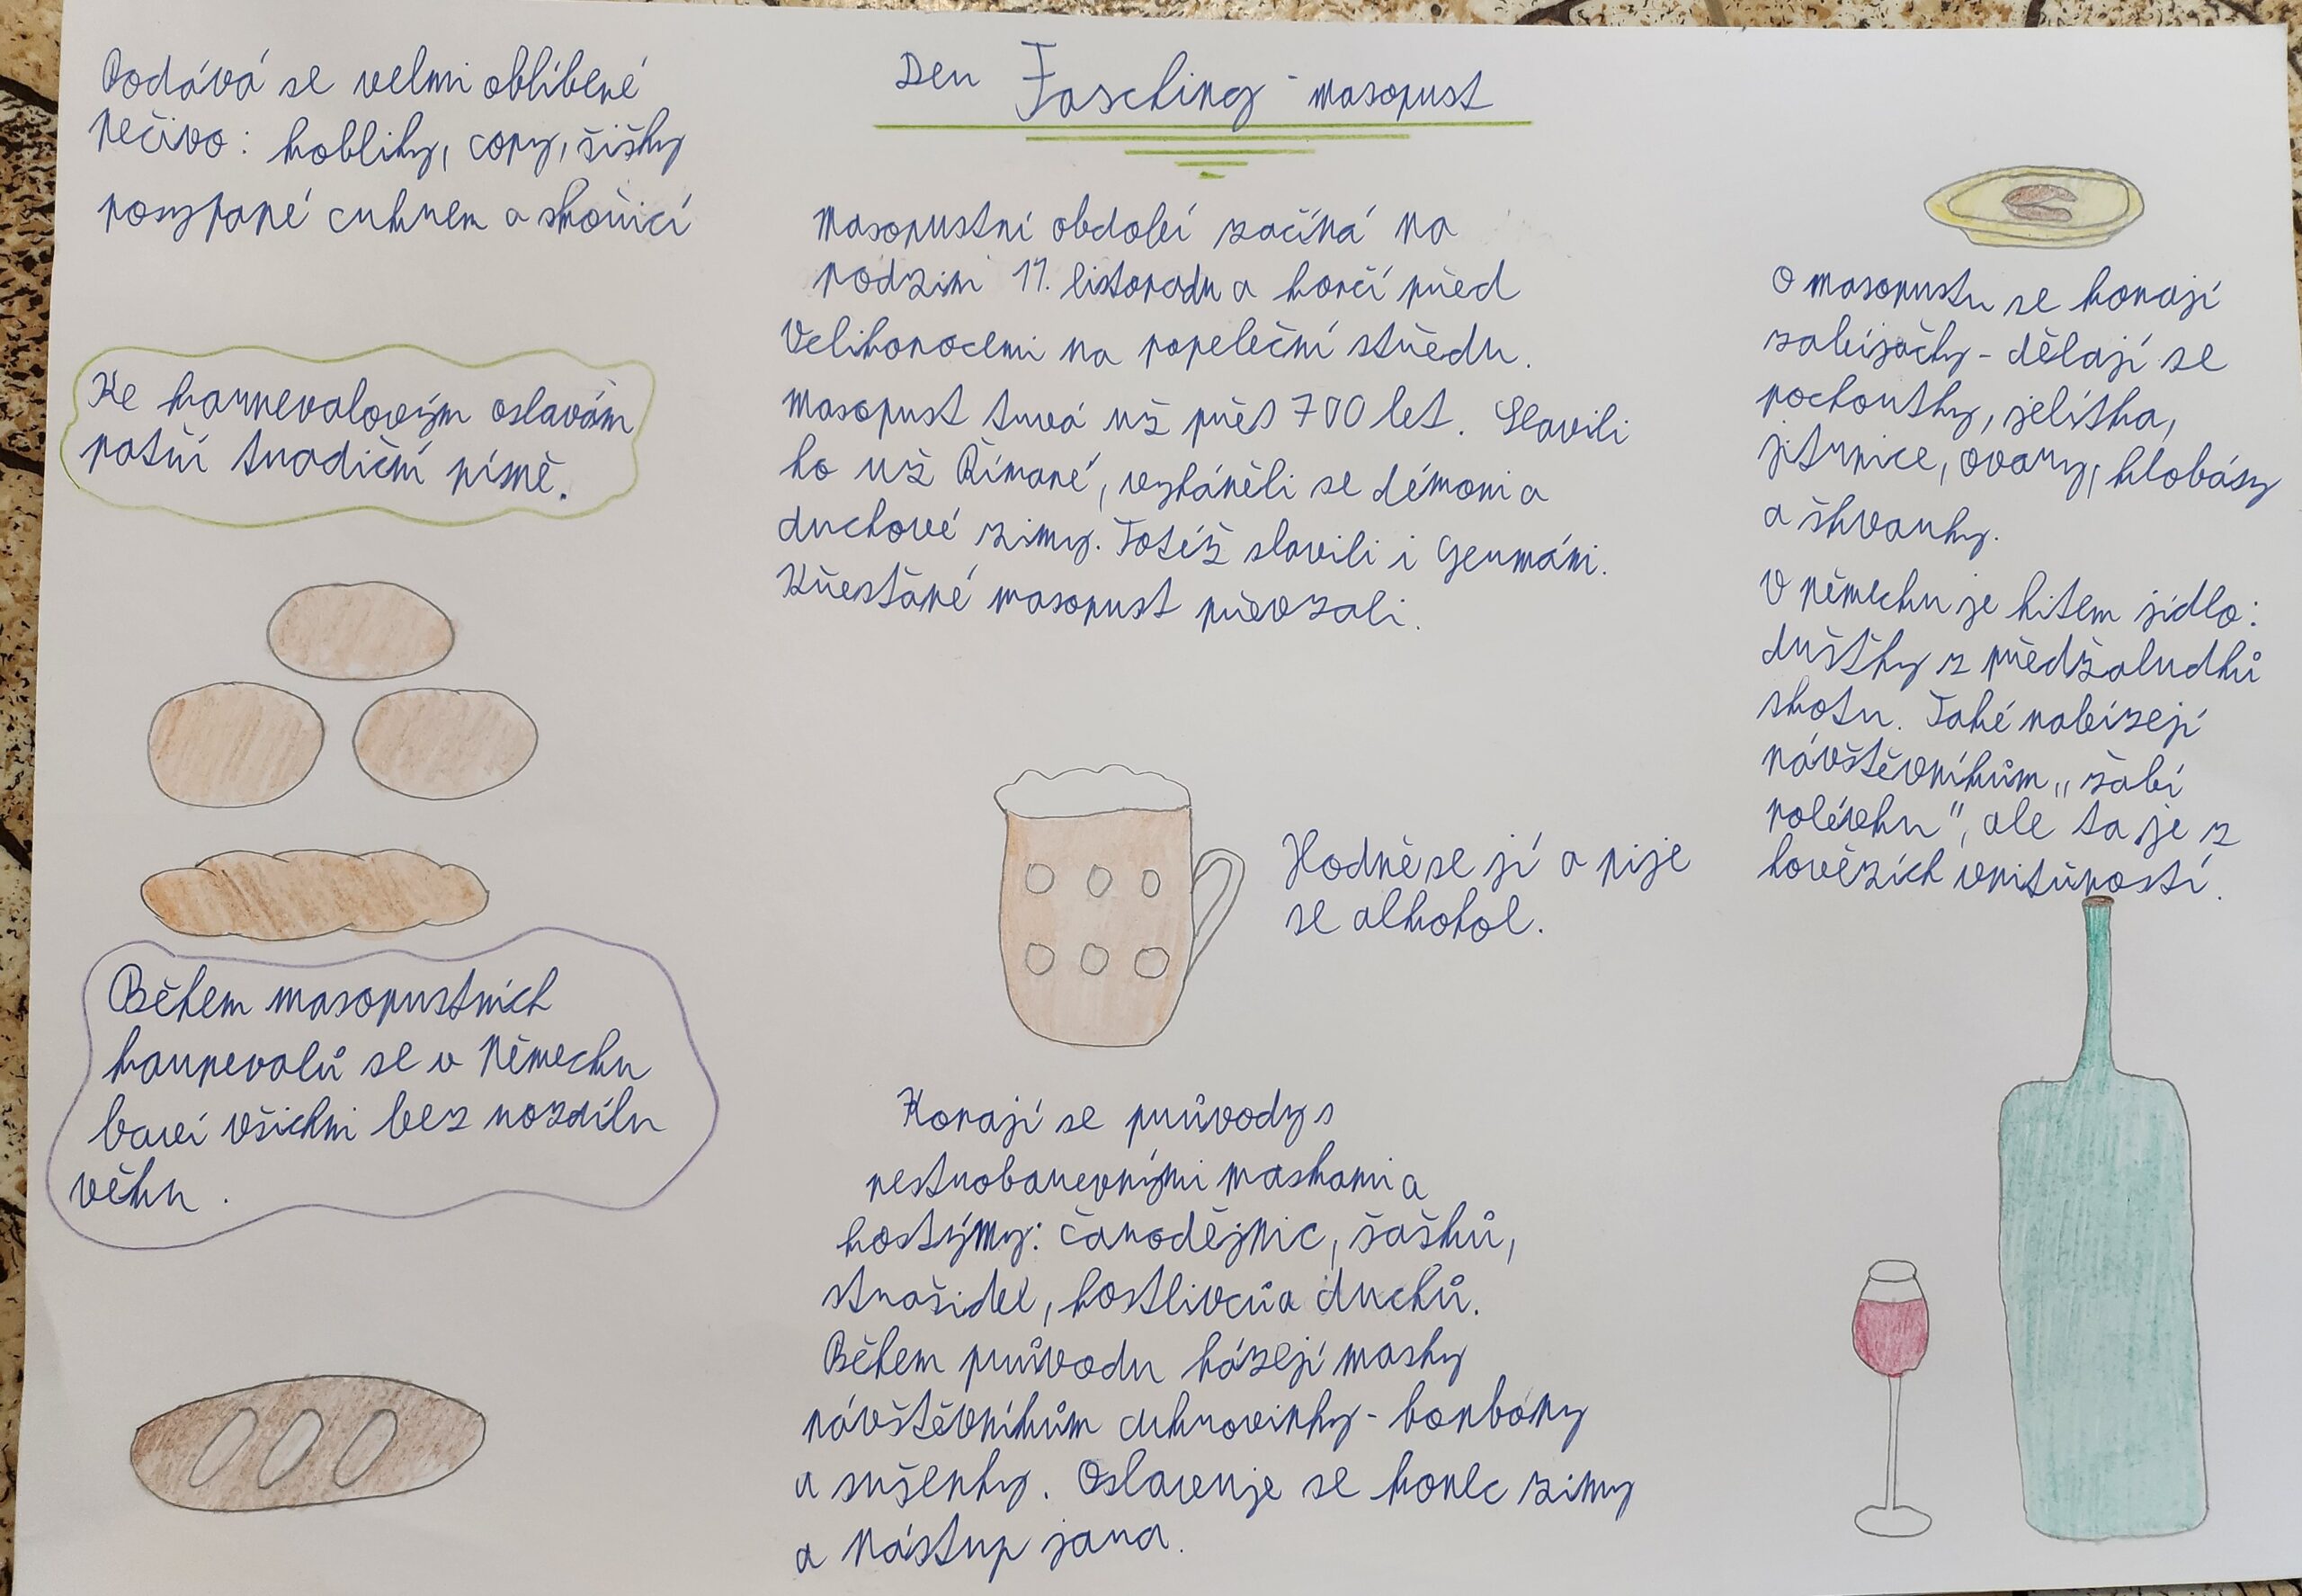 Den Fasching - masopust
Podává se velmi oblíbené
pečivo: koblihy, copy, šišky
posypané cukrem a skořicí
Ke karnevalovým oslavám
patří tradiční písně.
Během masopustních
karnevalů se v Německu
baví všichni bez rozdílu
věku.
Masopustní období začíná na
podzim 11. listopadu a končí před
Velikonocemi na popeleční středu.
Masopust trvá už přes 700 let. Slavili
ho už Římané, vyháněli se démoni a
duchové zimy. Totéž slavili i Germáni.
Křesťané masopust převzali.
Hodně se jí a pije
se alkohol.
Konají se průvody s
pestrobarevnými maskami a
kostýmy: čarodějnic, šašků,
strašidel, kostlivců a duchů.
Během průvodu házejí masky
návštěvníkům cukrovinky - bonbóny
a sušenky. Oslavuje se konec zimy
a nástup jara.
O masopustu se konají
zabijačky - dělají se
pochoutky, jelítka,
jitrnice, ovary, klobásy
a škvarky.
V německu je hitem jídlo:
dušťky z předžaludků
skotu. Také nabízejí
návštěvníkům „žabí
polévku", ale ta je z
hovězích vnitřností.